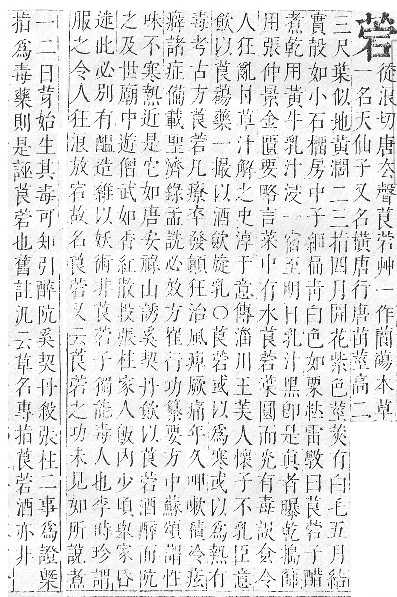 菪徒浪切唐去聲莨菪艸一作蘭蕩本草
一名天仙子又名橫唐行唐莖高二
三尺葉似地黃濶二三指四月開花紫色莖莢有白毛五月結
實殼如小石榴房中子細靑白色如粟粒雷斆曰莨菪子醋
煮乾用黃牛乳汁浸一宿至明日乳汁黑卽是眞者曝乾搗篩
用張仲景金匱要略言菜中有水莨菪葉圓而光有毒誤食令
人狂亂甘草汁解之史淳于意傳淄川王美人懷子不乳臣意
飮以莨蕩藥一撮以酒飮旋乳○莨菪或以爲寒或以爲熱有
毒考古方莨菪凡療牽發顚狂治風痺厥痛年久呷嗽積冷痃
癖諸症備載聖濟錄孟詵必效方崔行功纂要方中蘇頌謂性
味不寒熱近是它如唐安祿山誘奚契丹飮以莨菪酒醉而阬
之及世廟中遊僧武如香紅散投張柱家人飯內少頃舉家昏
迷此必別有醞造雜以妖術非莨菪子獨能毒人也李時珍謂
服之令人狂浪放宕故名莨菪又云莨菪之功未見如所說煮
一二日芽始生其毒可知引醉阬奚契丹投張柱二事爲證槩
指爲毒藥則是誣莨菪也舊註汎云草名專指莨菪酒亦非